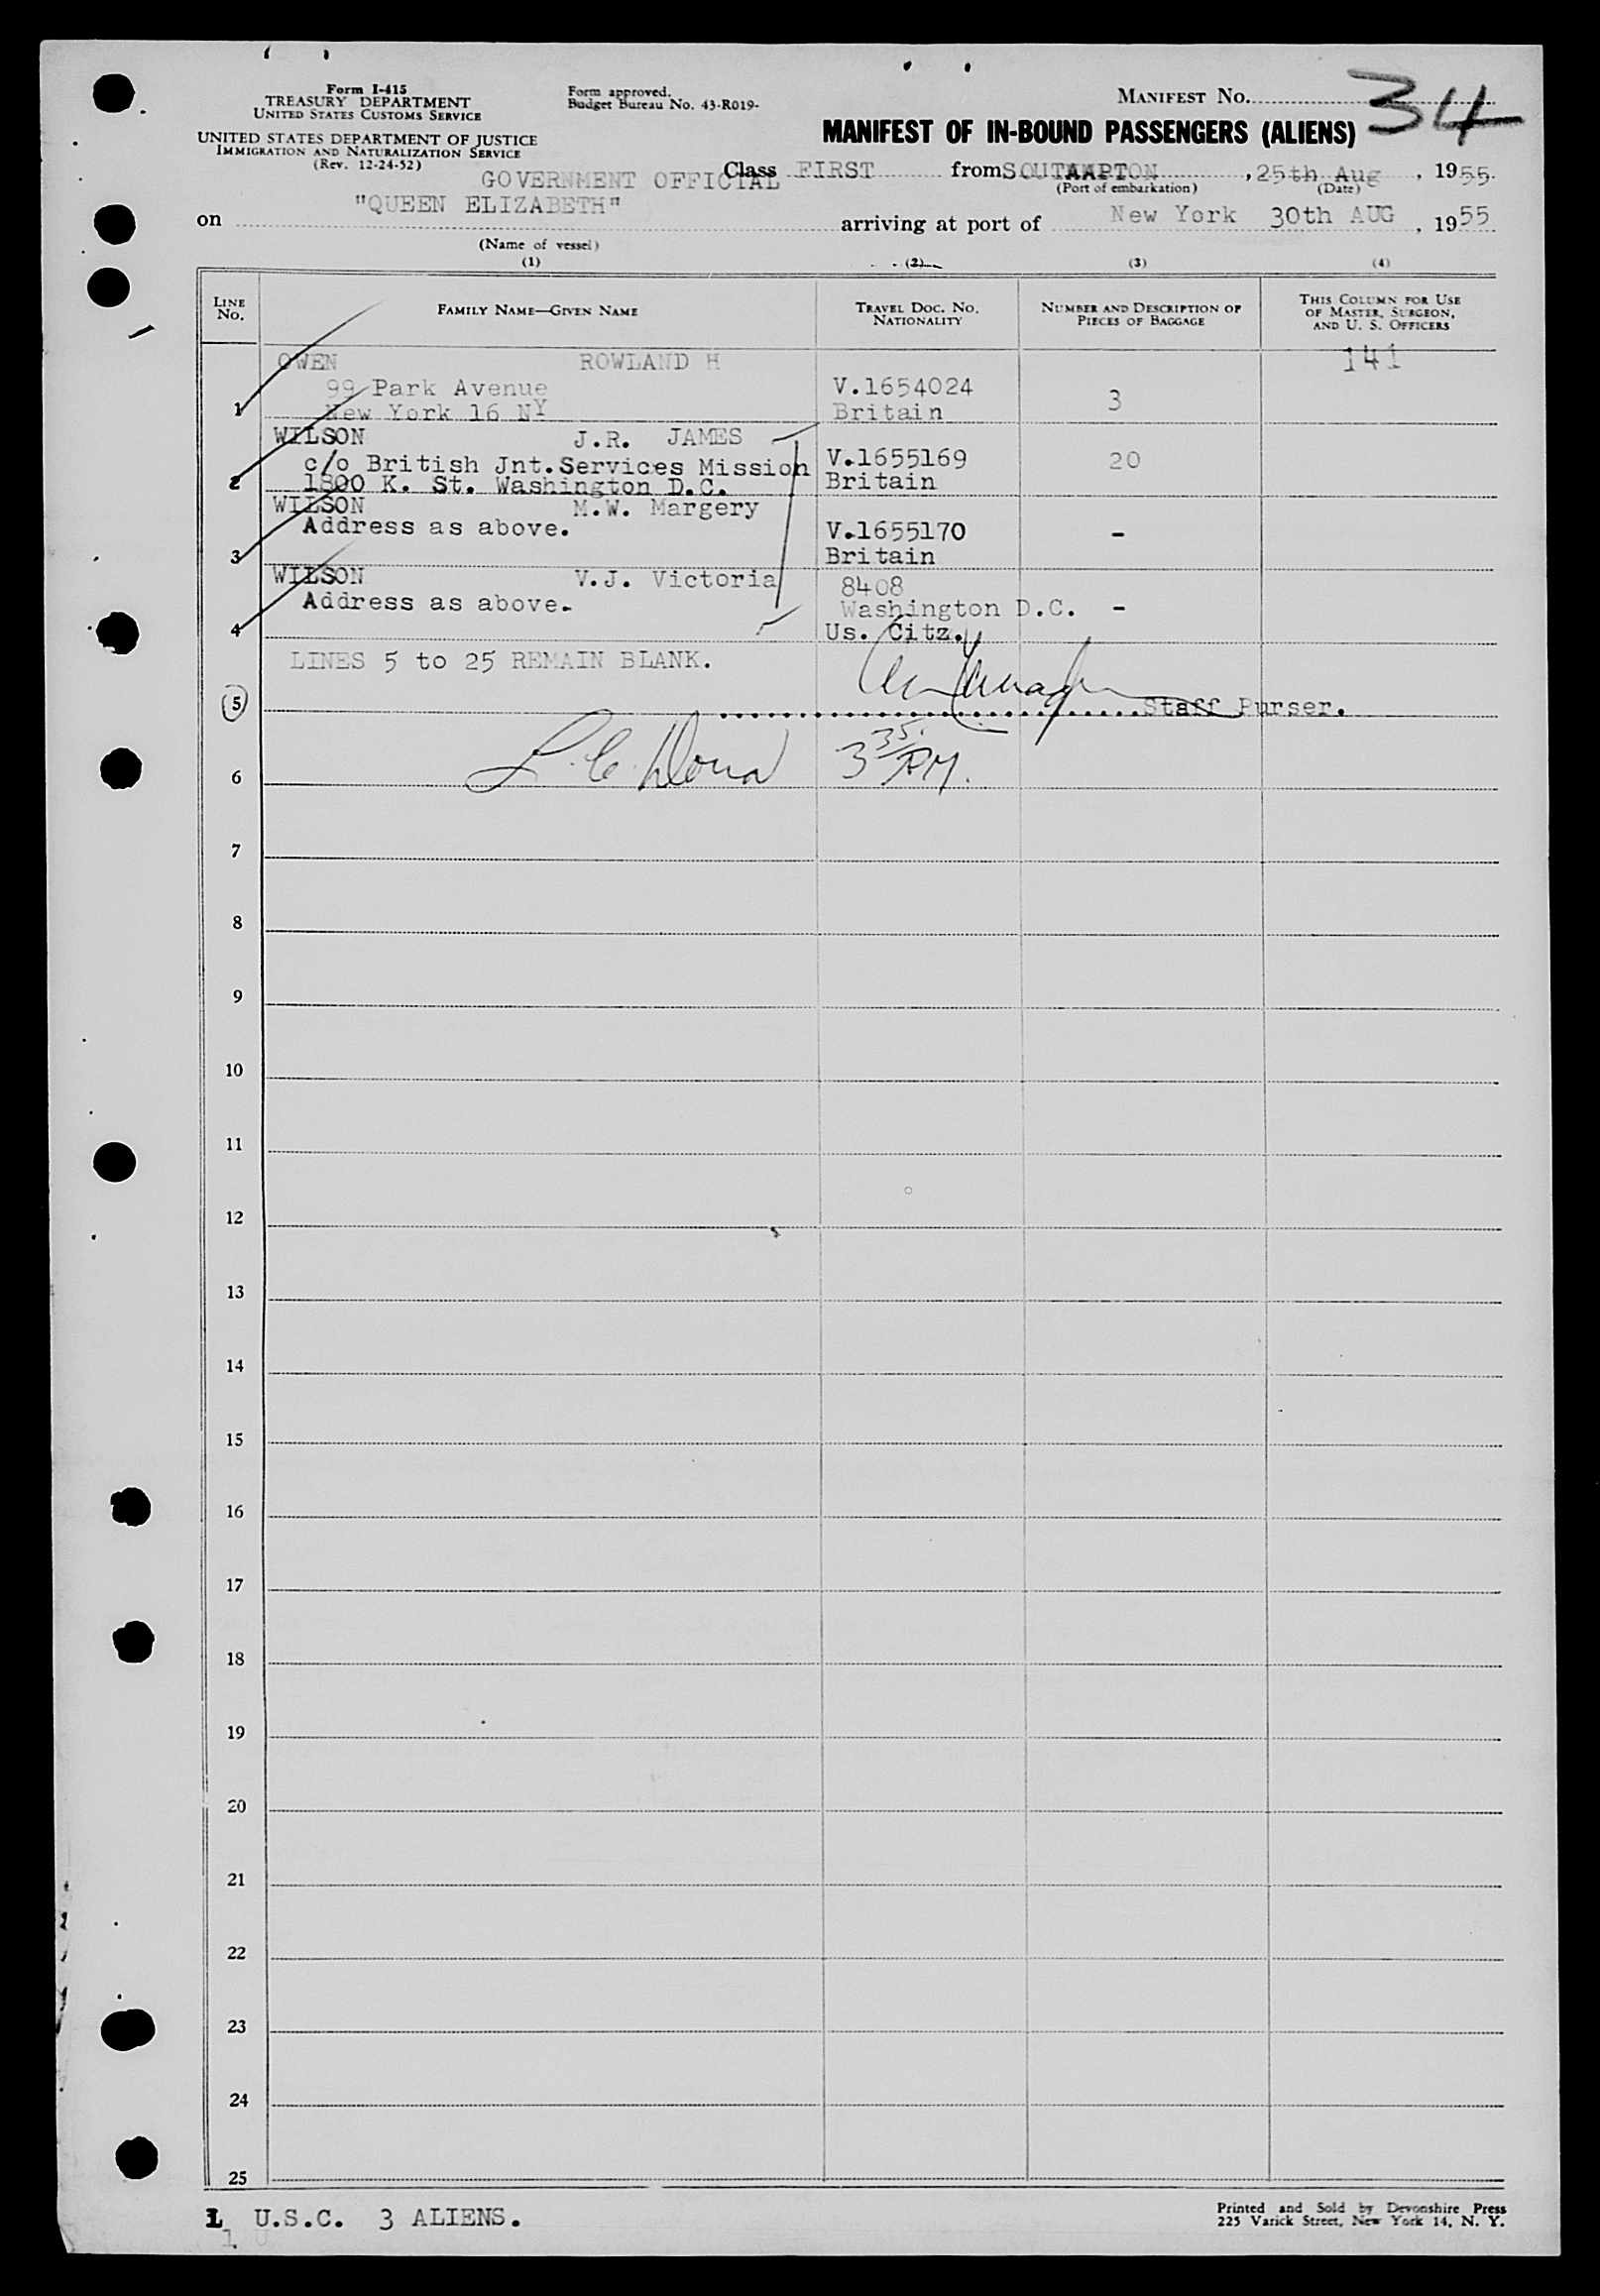 Form I-415
TREASURY DEPARTMENT
UNITED STATES CUSTOMS SERVICE
UNITED STATES DEPARTMENT OF JUSTICE
IMMIGRATION AND NATURALIZATION SERVICE
(Rev. 12-24-52)
Form approved.
Budget Bureau No. 43-R019-
MANIFEST No. 34
MANIFEST OF IN-BOUND PASSENGERS (ALIENS)
GOVERNMENT OFFICIAL
Class FIRST from , 25th Aug , 1955
(Port of embarkation) (Date)
on "QUEEN ELIZABETH" arriving at port of New York 30th AUG , 1955
(Name of vessel)
(1) (2) (3) (4)
LINE No.
FAMILY NAME—GIVEN NAME
TRAVEL DOC. No. NATIONALITY
NUMBER AND DESCRIPTION OF PIECES OF BAGGAGE
THIS COLUMN FOR USE OF MASTER, SURGEON, AND U. S. OFFICERS
OWEN ROWLAND H 141
99 Park Avenue V.1654024
1 New York 16 NY Britain 3
WILSON J.R. JAMES
c/o British Jnt.Services Mission V.1655169 20
2 1800 K. St. Washington D.C. Britain
WILSON M.W. Margery
Address as above. V.1655170 -
3 Britain
WILSON V.J. Victoria 8408
Address as above. Washington D.C. -
4 Us. Citz.
LINES 5 to 25 REMAIN BLANK.
5 Staff Purser.
6 3 35 PM.
7
8
9
10
11
12
13
14
15
16
17
18
19
20
21
22
23
24
25
1 U.S.C. 3 ALIENS.
Printed and Sold by Devonshire Press
225 Varick Street, New York 14, N. Y.